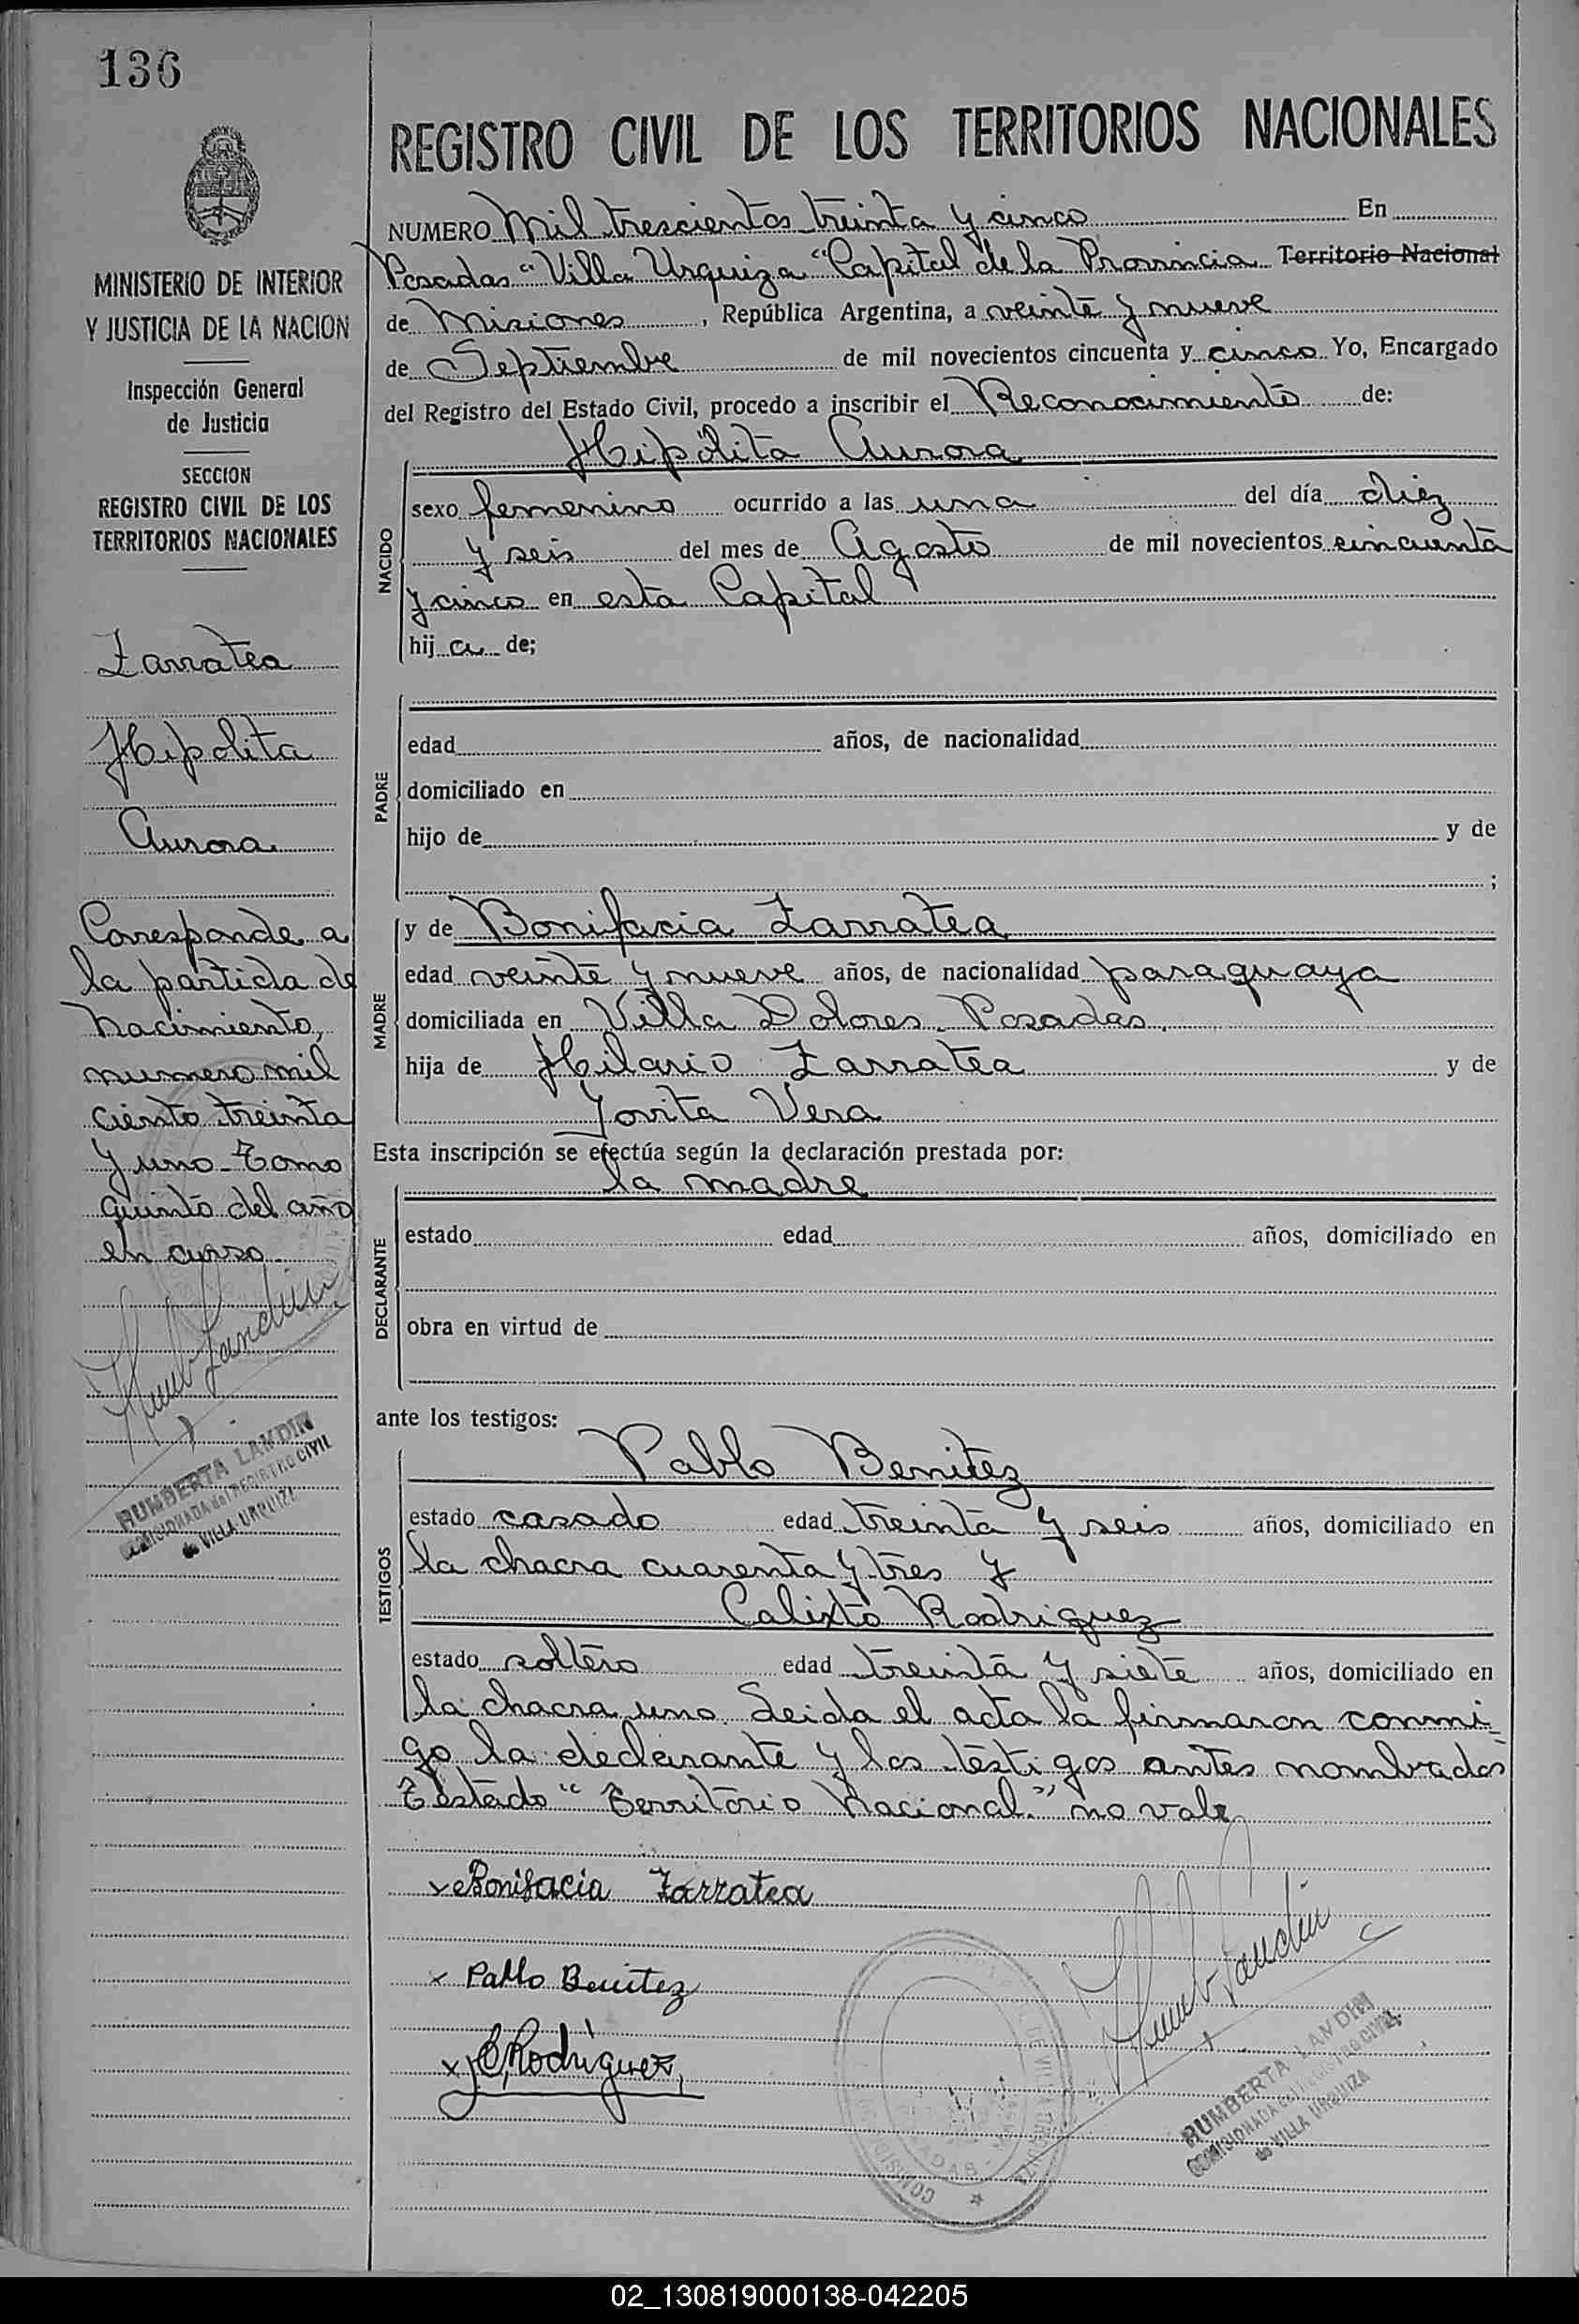 136
MINISTERIO DE INTERIOR
Y JUSTICIA DE LA NACION
Inspección General
de Justicia
SECCION
REGISTRO CIVIL DE LOS
TERRITORIOS NACIONALES
Zarratea
Hipolita
Aurora
Coresponde a
la partida de
Nacimiento,
numero mil
ciento treinta
y uno - Tomo
quinto del año
en curso
RUMBERTA LANDIN
COMISIONADA del REGISTRO CIVIL
de VILLA URQUIZA
REGISTRO CIVIL DE LOS TERRITORIOS NACIONALES
NUMERO Mil trescientos treinta y cinco En
Posadas "Villa Urquiza" Capital de la Provincia Territorio Nacional
de Misiones, República Argentina, a veinte y nueve
de Septiembre de mil novecientos cincuenta y cinco Yo, Encargado
del Registro del Estado Civil, procedo a inscribir el Reconocimiento de:
Hipólita Aurora
NACIDO
sexo femenino ocurrido a las una del día diez
y seis del mes de Agosto de mil novecientos cincuenta
y cinco en esta Capital
hij a de;
PADRE
edad años, de nacionalidad
domiciliado en
hijo de y de
;
MADRE
y de Bonifacia Zarratea
edad veinte y nueve años, de nacionalidad paraguaya
domiciliada en Villa Dolores. Posadas.
hija de Hilario Zarratea y de
Jovita Vera
Esta inscripción se efectúa según la declaración prestada por:
la madre
DECLARANTE
estado edad años, domiciliado en
obra en virtud de
ante los testigos:
TESTIGOS
Pablo Benitez
estado casado edad treinta y seis años, domiciliado en
la chacra cuarenta y tres y
Calixto Rodriguez
estado soltero edad treinta y siete años, domiciliado en
la chacra uno. Leida el acta la firmaron conmi-
go la declarante y los testigos antes nombrados
Testado "Territorio Nacional" no vale
x Bonifacia Zarratea
x Pablo Benitez
x C. Rodriguez,
RUMBERTA LANDIN
COMISIONADA del REGISTRO CIVIL
de VILLA URQUIZA
02_130819000138-042205